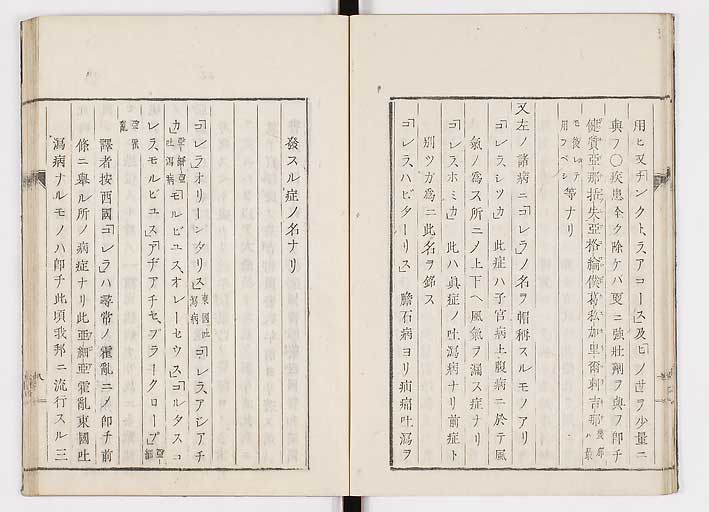 用ヒ又チンクト、ラアコース」及ヒ「ヒノ世ヲ少量ニ
與フ〇疾患全ク除ケハ更ニ強壮劑ヲ與フ即チ
健質亞那
用フベシ 等ナリ
又左ノ諸病ニ「コレラ」ノ名ヲ帽稱スルモノアリ
「コレラ、シツカ」 此症ハ子宮病上腹病ニ於テ風
氣ノ為ス所ニノ上下ヘ風氣ヲ漏ス症ナリ
「コレラ、ホミカ」 此ハ真症ノ吐瀉病ナリ前症ト
別ツガ為ニ此名ヲ銘ス
「コレラ、ハビターリス」 膽石病ヨリ疝痛吐瀉ヲ
發スル症ノ名ナリ
「コレラ、オリーンタリス」東國吐瀉病「コレラ、アシアチ
カ」亞細亞吐瀉病「モルビユス、オレーセウス」「コルタスコ
レラ、モルビユス」「アヂアチセ、ブラークロープ」亞細亞霍亂
譯者按西國「コレラ」ハ尋常ノ霍亂ニノ即チ前
條ニ舉ル所ノ病症ナリ此亞細亞霍亂東國吐
瀉病ナルモノハ即チ此頃我邦ニ流行スル三